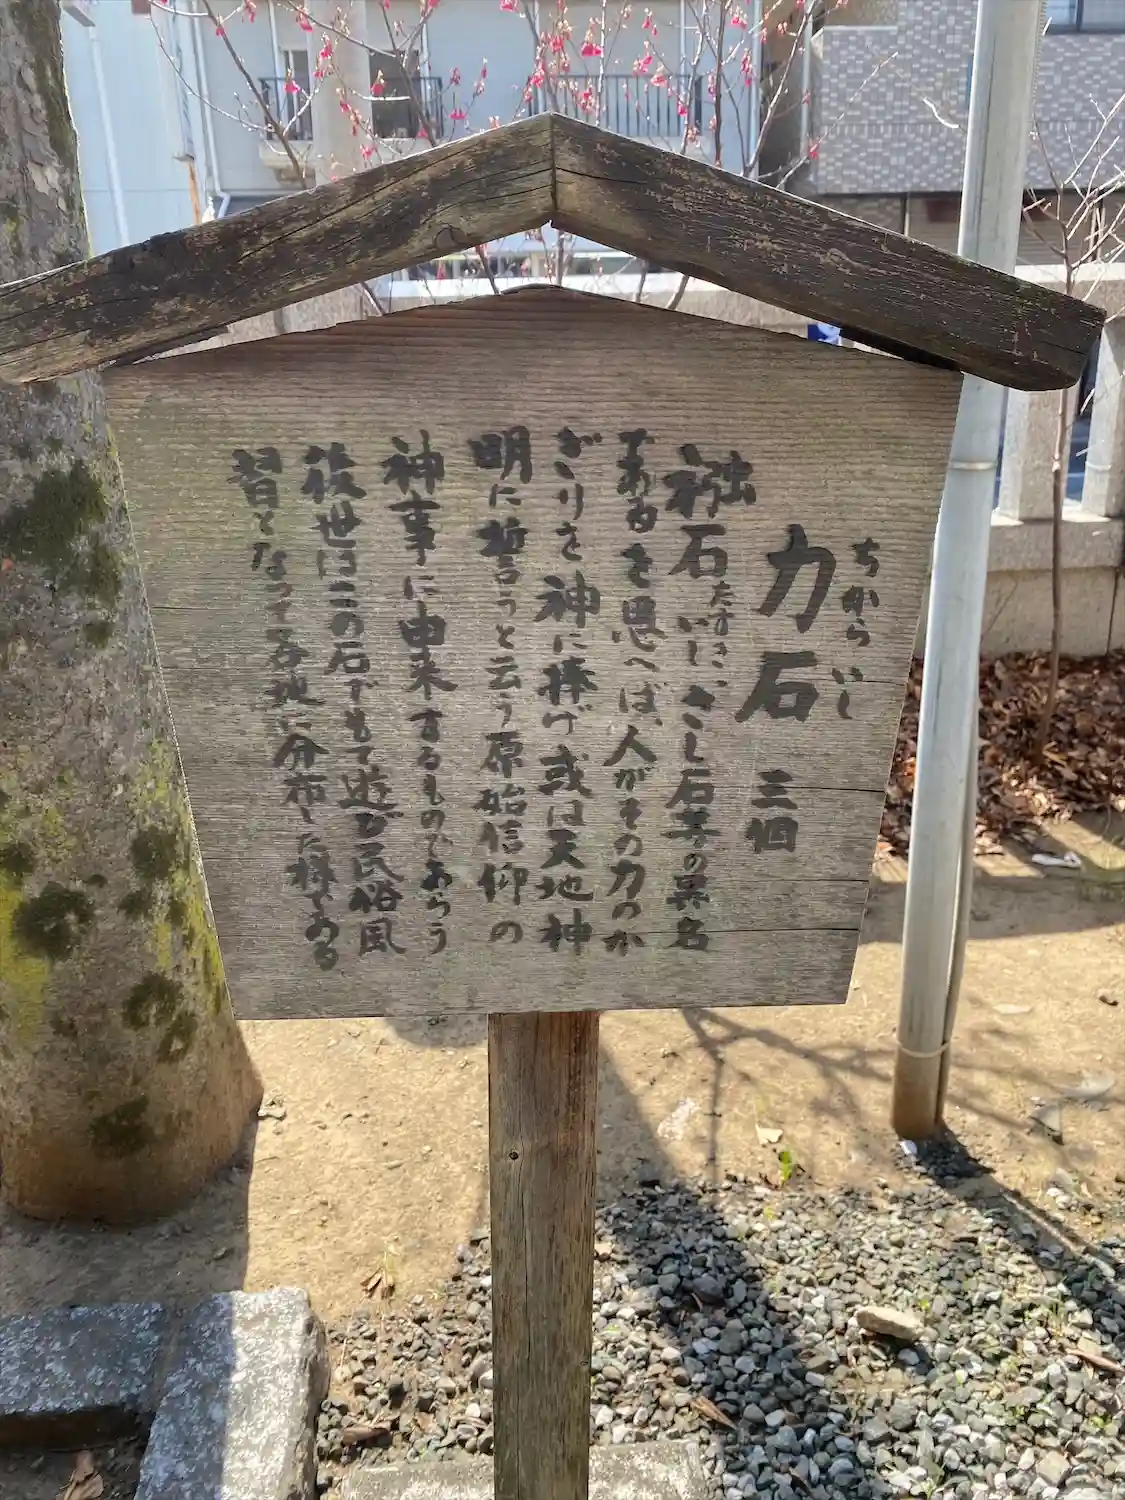 ちからいし
力石 三個
石ためし、さし石等の異名
あるを思へば、人がその力のか
ぎりを神に捧げ或は天地神
明に誓うと云う原始信仰の
神事に由来するものであらう
後世はこの石でもて遊び民俗風
習となって各地に分布した様である